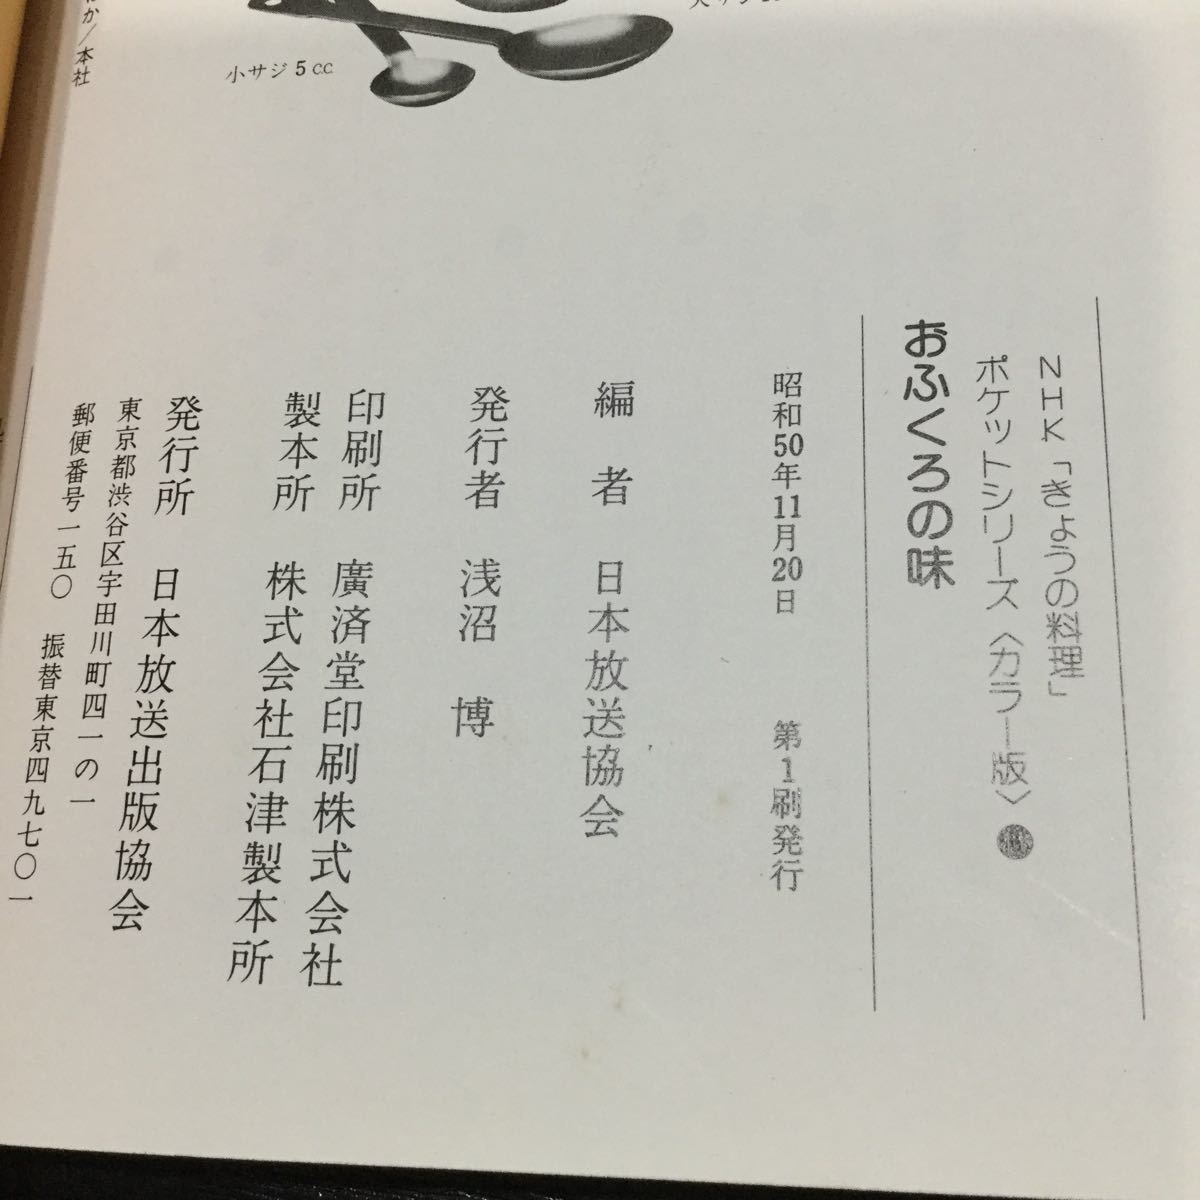 小サジ5cc
NHK「きょうの料理」
ポケットシリーズ〈カラー版〉
おふくろの味
昭和50年11月20日　第1刷発行
編　者　日本放送協会
発行者　浅沼　博
印刷所　廣済堂印刷株式会社
製本所　株式会社石津製本所
発行所　日本放送出版協会
東京都渋谷区宇田川町四一の一
郵便番号一五〇　振替東京四九七〇一
か／本社